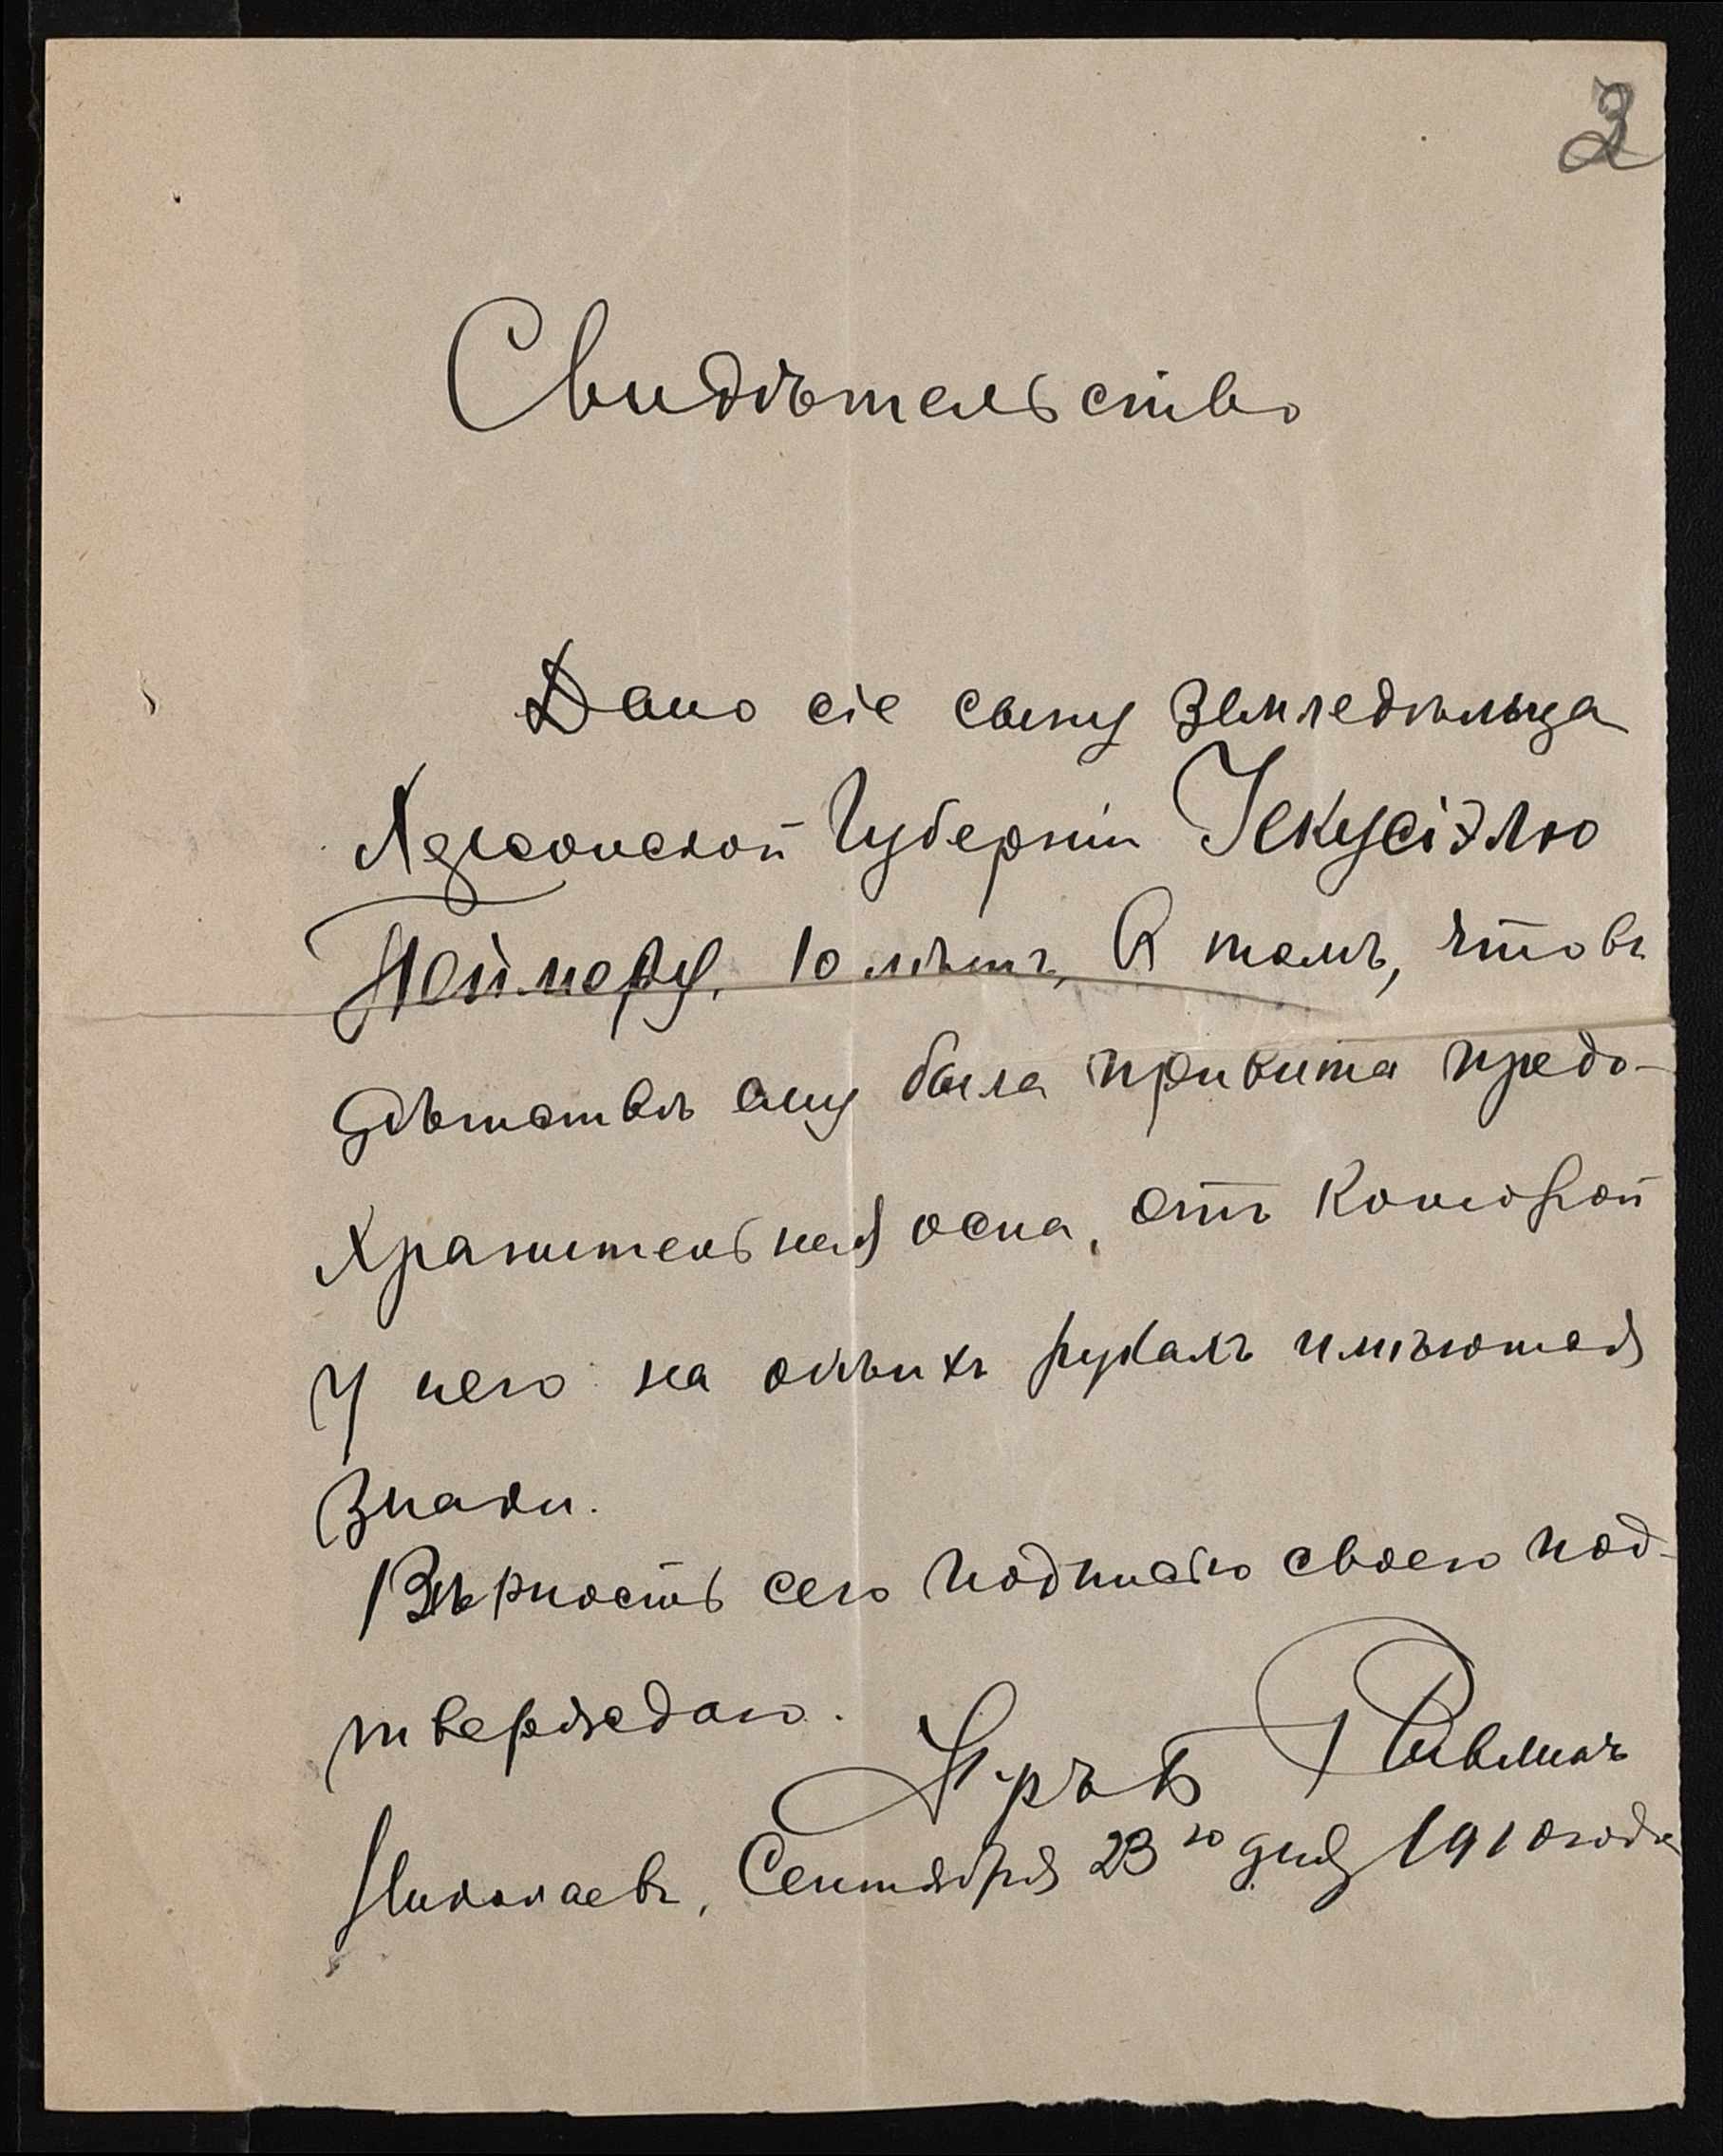 2
Свидѣтельство
Дано сіе сыну земледѣльца
Херсонской Губерніи Іекусіэлю
Неймарку, 10 лѣтъ, в томъ, что въ
дѣтствѣ ему была привита предо-
хранительная оспа, отъ которой
у него на обѣихъ рукахъ имѣются
знаки.
Вѣрность сего подписью своею под-
тверждаю.
Вр
Николаевъ, Сентября 23го дня 1910 года